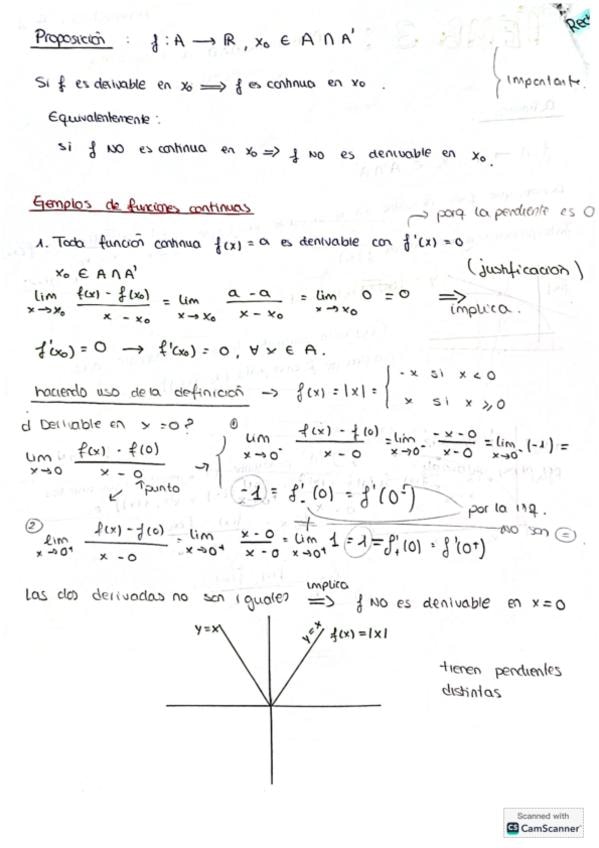 Rec
Proposición : f : A → ℝ, x₀ ∈ A ∩ A'
Si f es derivable en x₀ ⟹ f es continua en x₀.
importante.
Equivalentemente:
si f NO es continua en x₀ ⟹ f NO es derivable en x₀.
Ejemplos de funciones continuas
→ porq la pendiente es 0
1. Toda función continua f(x) = a es derivable con f'(x) = 0
x₀ ∈ A ∩ A'
(justificación)
lim x→x₀ (f(x) - f(x₀))/(x - x₀) = lim x→x₀ (a - a)/(x - x₀) = lim x→x₀ 0 = 0 ⟹ implica.
f'(x₀) = 0 → f'(x₀) = 0, ∀ x ∈ A.
haciendo uso de la definición → f(x) = |x| = { -x si x < 0
x si x ⩾ 0
¿ Derivable en x = 0?
① lim x→0⁻ (f(x) - f(0))/(x - 0) = lim x→0⁻ (-x - 0)/(x - 0) = lim x→0⁻ (-1) =
lim x→0 (f(x) - f(0))/(x - 0) →
↑ punto
-1 = f'₋(0) = f'(0⁻)
≠
por la izq.
no son =
② lim x→0⁺ (f(x) - f(0))/(x - 0) = lim x→0⁺ (x - 0)/(x - 0) = lim x→0⁺ 1 = 1 = f'₊(0) = f'(0⁺)
Las dos derivadas no son iguales implica ⟹ f NO es derivable en x = 0
y=x
y=x
f(x)=|x|
tienen pendientes
distintas
Scanned with
CS CamScanner